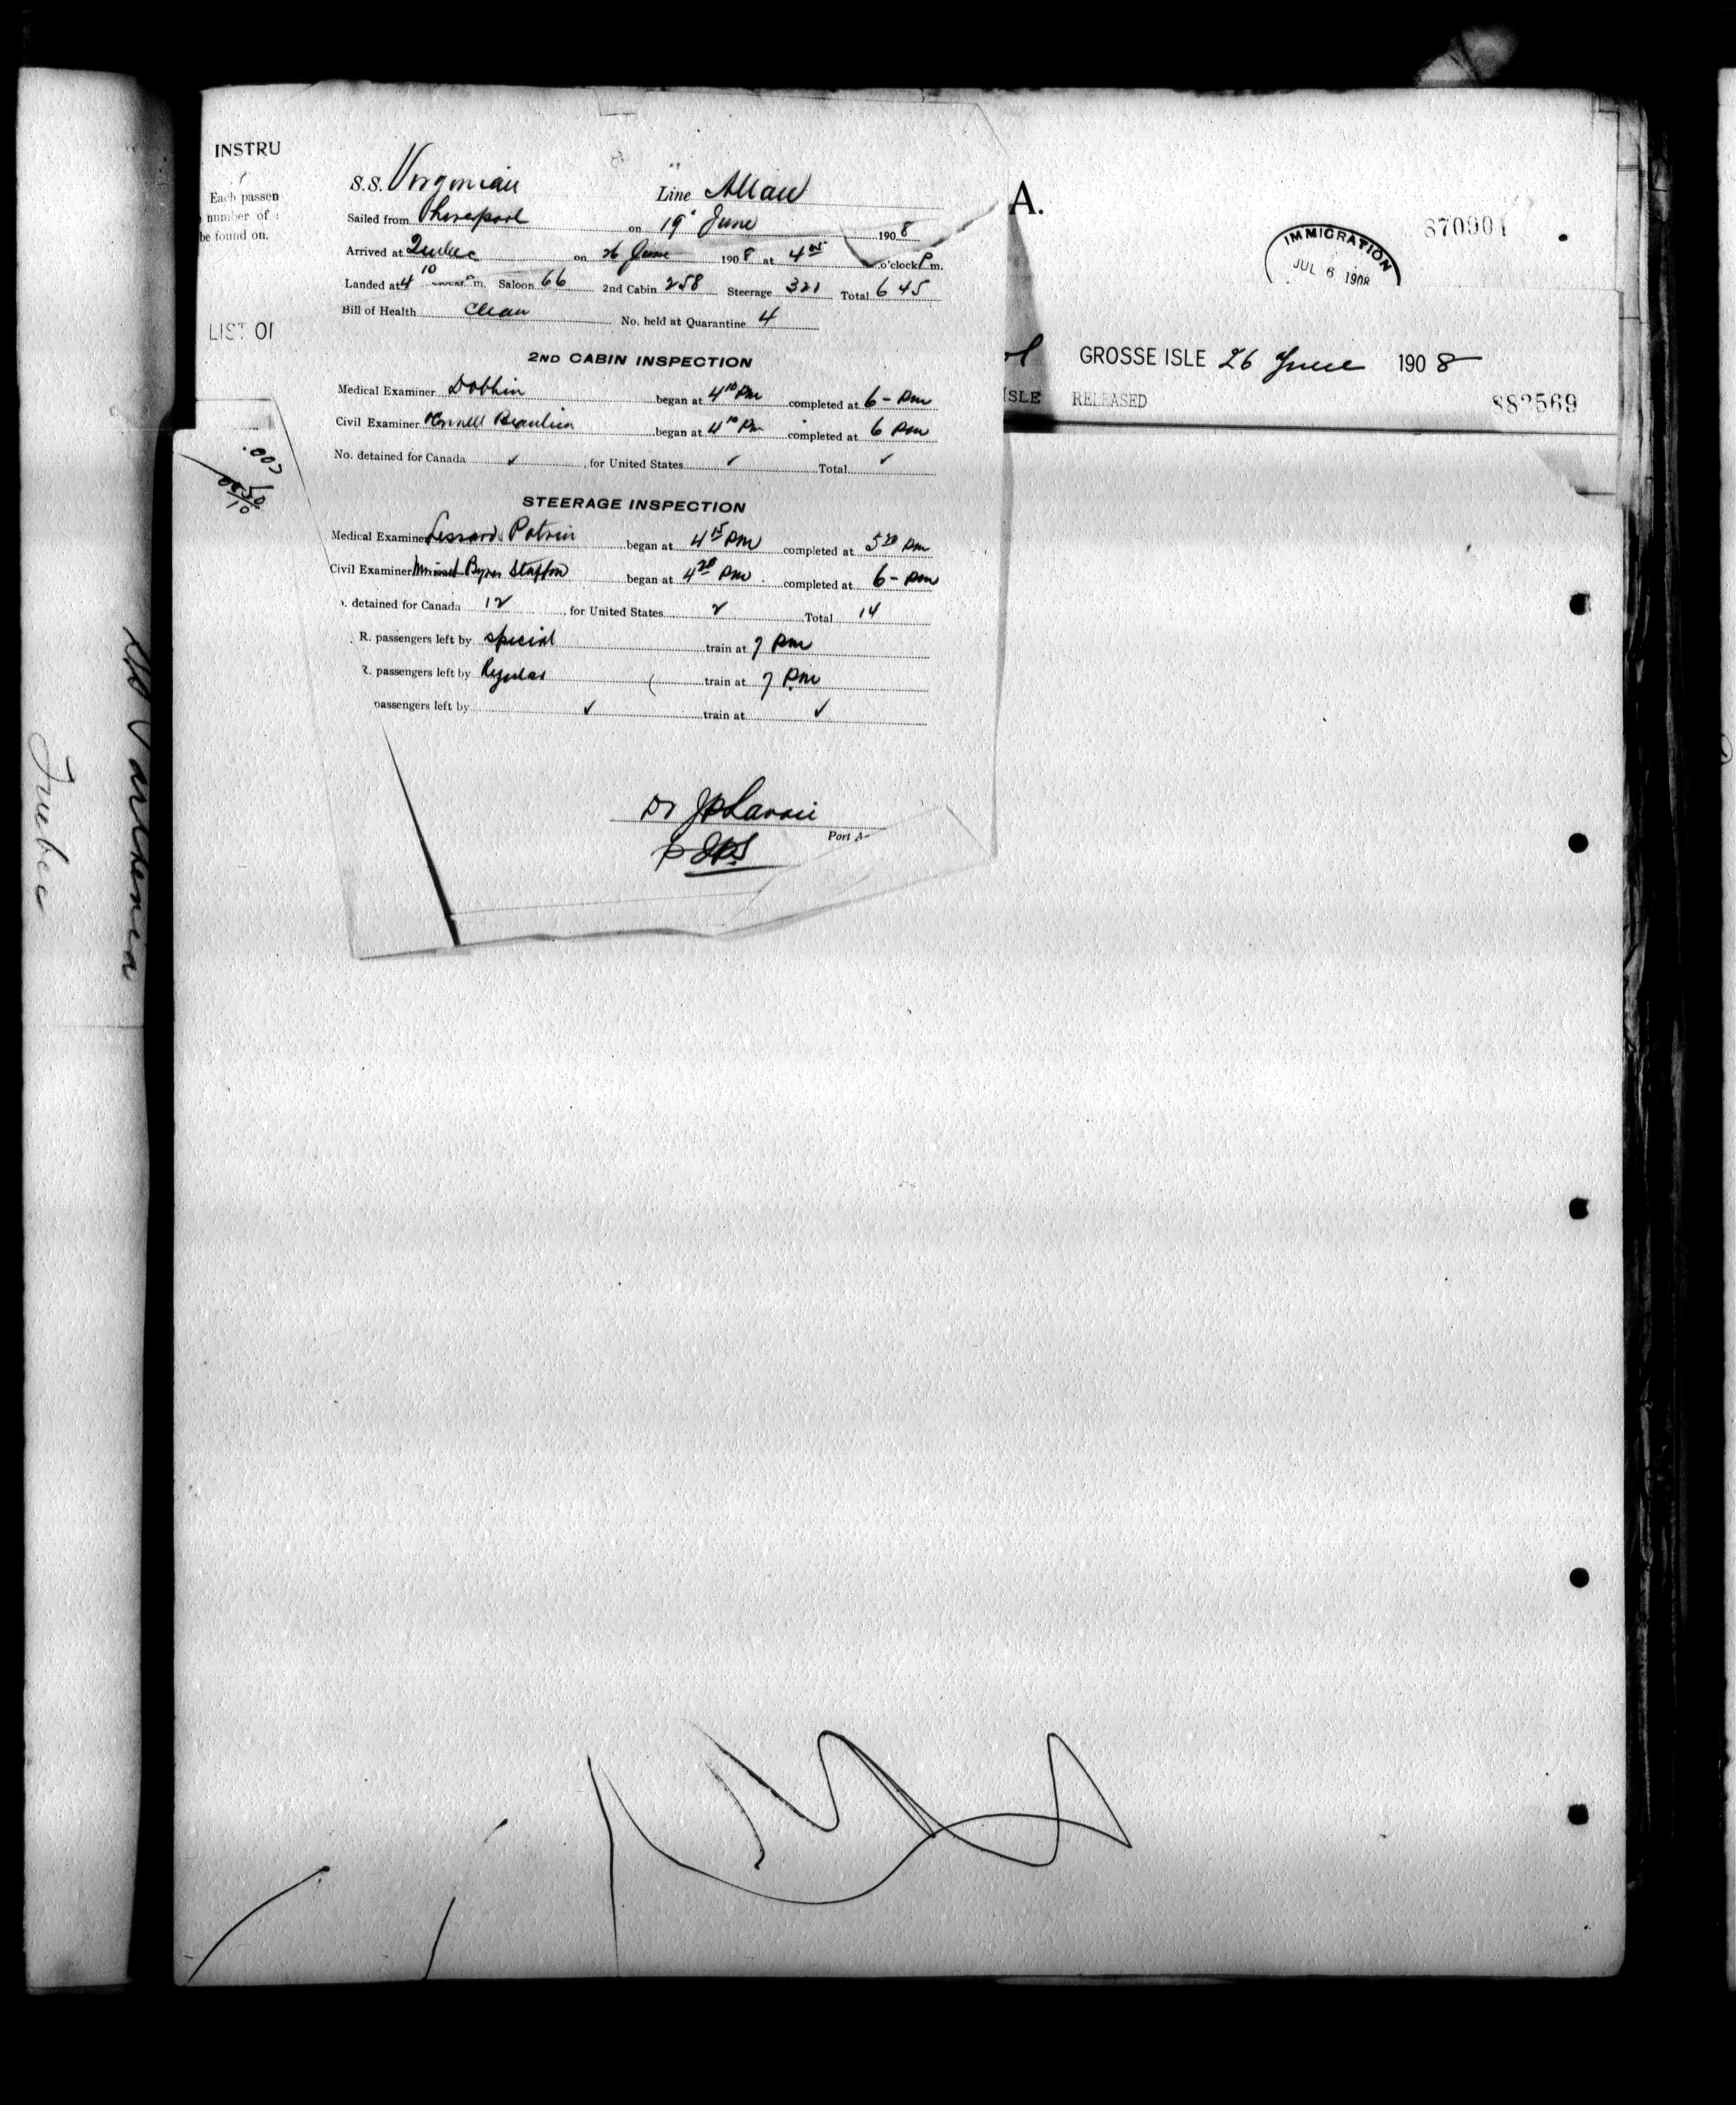 INSTRU
Each passen
number of
be found on.
LIST OF
S.S. Virginian Line Allan
Sailed from Liverpool on 19 June 1908
Arrived at Quebec on 26 June 1908 at 4 05 o'clock P.m.
Landed at 4 10 m. Saloon 66 2nd Cabin 258 Steerage 321 Total 645
Bill of Health Clean No. held at Quarantine 4
2ND CABIN INSPECTION
Medical Examiner Dobbin began at 4 10 Pm completed at 6 - Pm
Civil Examiner Beaulieu began at 4 10 Pm completed at 6 Pm
No. detained for Canada ✓ , for United States ✓ Total ✓
STEERAGE INSPECTION
Medical Examiner Lessard Potvin began at 4 15 Pm completed at 5 20 Pm
Civil Examiner Byrne Stafford began at 4 20 Pm. completed at 6 - Pm
. detained for Canada 12 , for United States 2 Total 14
. R. passengers left by special train at 7 Pm
R. passengers left by Regular train at 7 Pm
passengers left by ✓ train at ✓
Dr JP Lavoie
Port A
A.
870901
IMMIGRATION
JUL 6 1908
GROSSE ISLE 26 June 1908
ISLE RELEASED
882569
Quebec